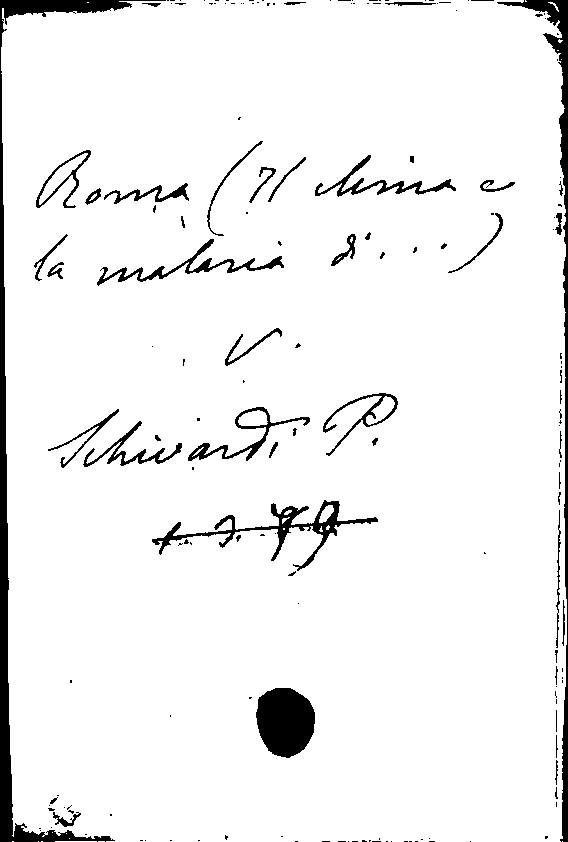 Roma (Il clima e
la malaria di...)
V.
Schivardi P.